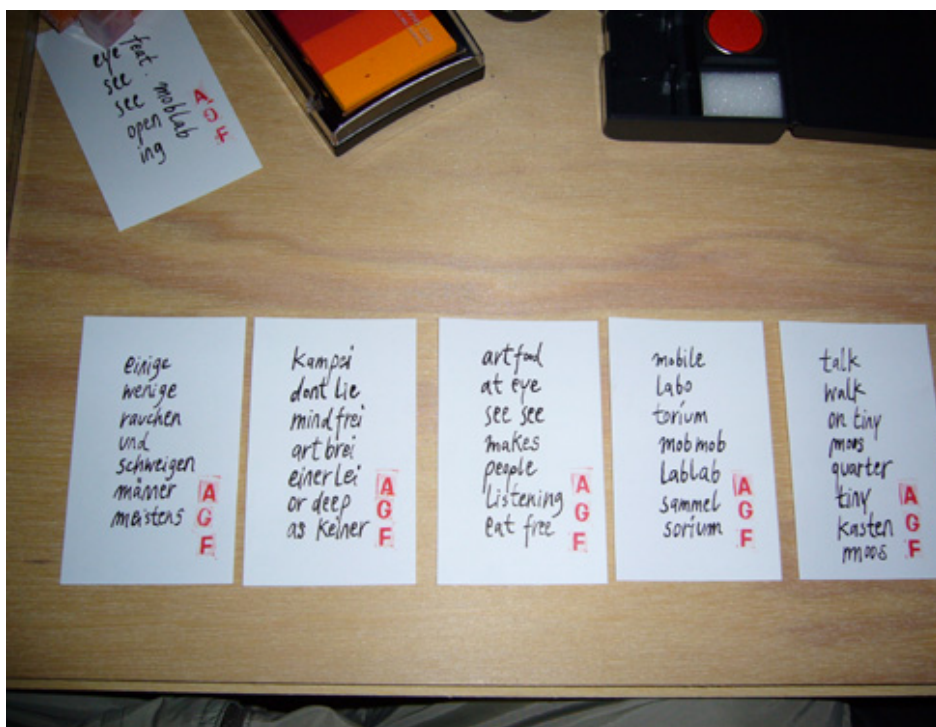 feat. moblab
eye
see
see
open
ing
A
G
F
einige
wenige
rauchen
und
schweigen
männer
meistens
A
G
F
kampai
dont lie
mind frei
art brei
einerlei
or deep
as keiner
A
G
F
art food
at eye
see see
makes
people
listening
eat free
A
G
F
mobile
labo
torium
mob mob
lablab
sammel
sorium
A
G
F
talk
walk
on tiny
moos
quarter
tiny
kasten
moos
A
G
F